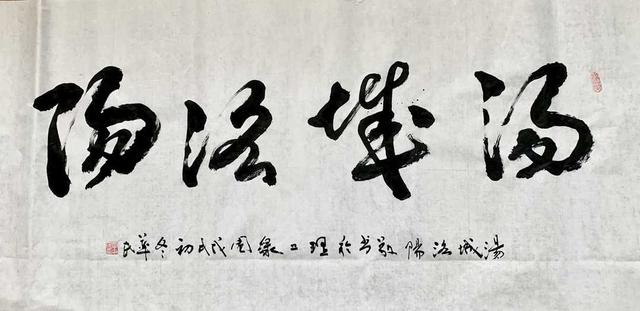 湯城洛陽
湯城洛陽敬书於理工家園戊戌初冬華民